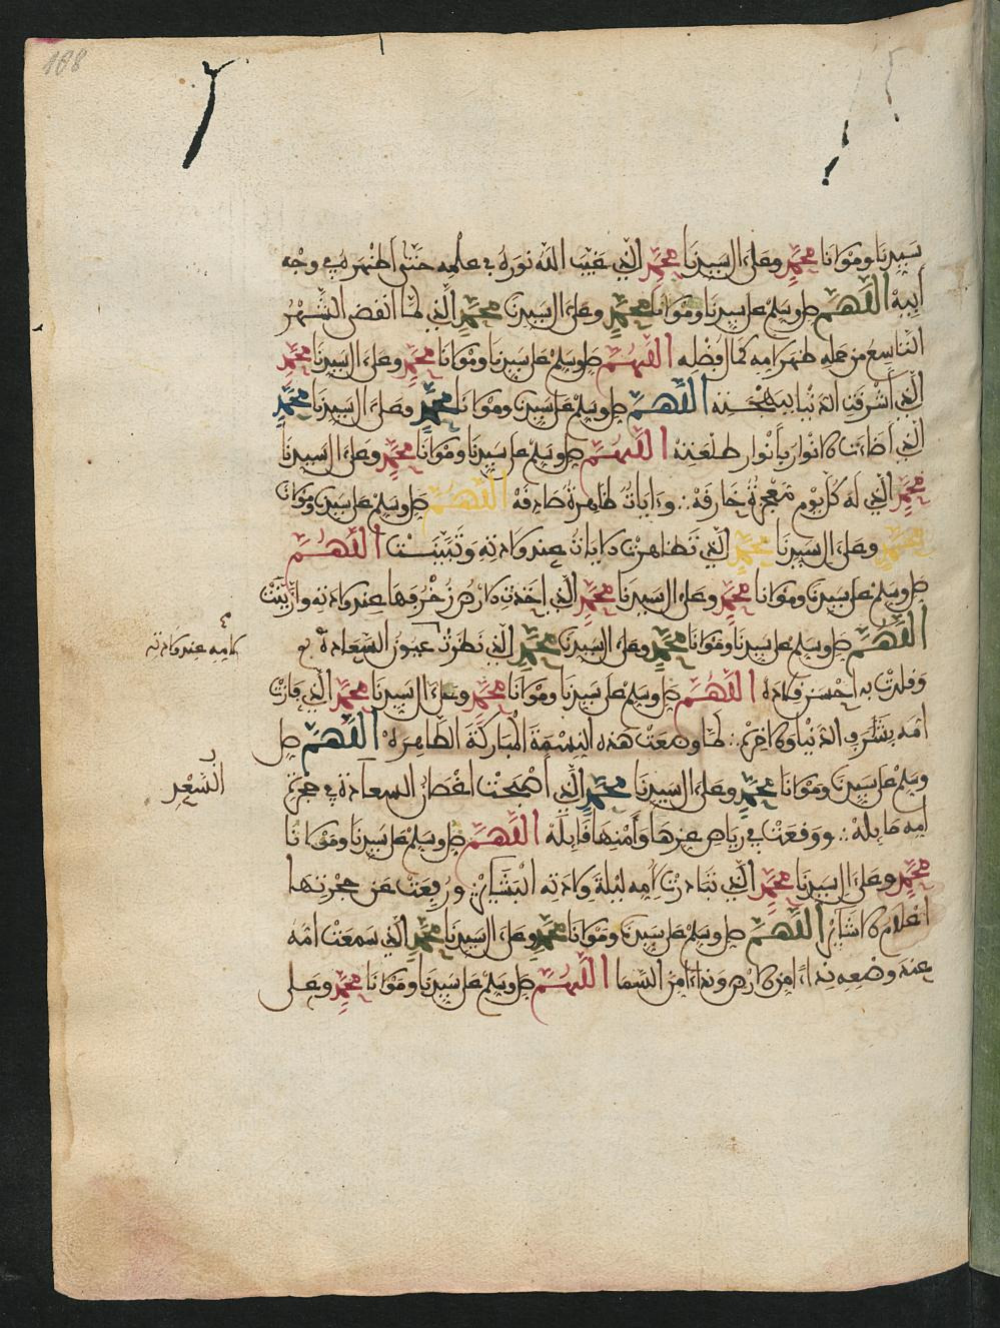 188
سيدنا ومولانا محمد وعلى ال سيدنا محمد الذي غيب الله نوره في علمه حتى اظهره في وجه
أبيه اللهم صل وسلم على سيدنا ومولانا محمد وعلى ال سيدنا محمد الذي لما انقضى الشهر
التاسع من حمله ظهر لامه كمال فضله اللهم صل وسلم على سيدنا ومولانا محمد وعلى ال سيدنا محمد
الذي أشرقت الدنيا ببهجته اللهم صل وسلم على سيدنا ومولانا محمد وعلى ال سيدنا محمد
الذي أضاءت الانوار بأنوار طلعته اللهم صل وسلم على سيدنا ومولانا محمد وعلى ال سيدنا
محمد الذي له كل يوم معجزة خارقة وءايات ظاهرة صادقة اللهم صل وسلم على سيدنا ومولانا
محمد وعلى ال سيدنا محمد الذي تظاهرت الايات عند ولادته وتبينت اللهم
صل وسلم على سيدنا ومولانا محمد وعلى ال سيدنا محمد الذي اخذت الارض زخرفها عند ولادته وازينت
اللهم صل وسلم على سيدنا ومولانا محمد وعلى ال سيدنا محمد الذي نظرت عيون السعادة
لامه عند ولادته
وقلدت به احسن قلادة اللهم صل وسلم على سيدنا ومولانا محمد وعلى ال سيدنا محمد الذي فازت
امه بشرف الدنيا والاخرة لما وضعت هذه النسمة المباركة الطاهرة اللهم صل
وسلم على سيدنا ومولانا محمد وعلى ال سيدنا محمد الذي أضحت اغصان السعادة في حجرة
امه مايلة ووقعت في رياض عزها وأمنها قايلة اللهم صل وسلم على سيدنا ومولانا
محمد وعلى ال سيدنا محمد الذي تبادرت لامه ليلة ولادته البشاير ورفعت عن حجرتها
اعلام اللهم صل وسلم على سيدنا ومولانا محمد وعلى ال سيدنا محمد الذي سمعت امه
عند وضعه نداءا من الارض ونداءا من السما اللهم صل وسلم على سيدنا ومولانا محمد وعلى